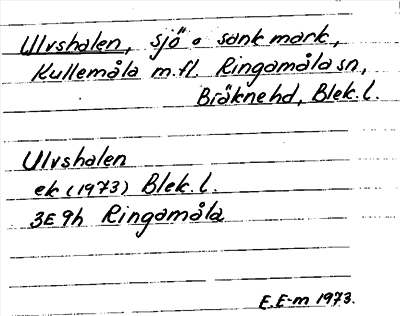 Ulvshalen, sjö o sank mark,
Kullemåla m.fl. Ringamåla sn,
Bräknehd, Blek. l.
Ulvshalen
ek (1973) Blek. l.
3E 9h Ringamåla
E.E-m 1973.